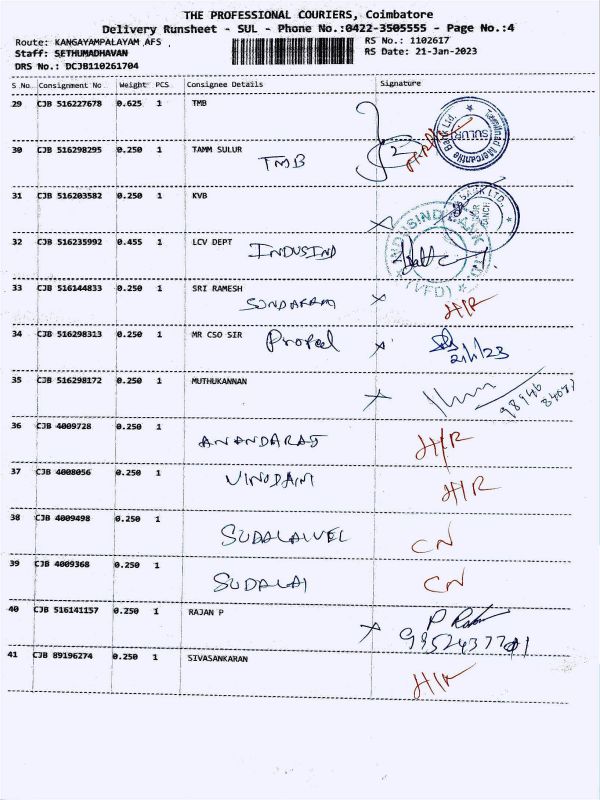 THE PROFESSIONAL COURIERS, Coimbatore
Delivery Runsheet - SUL - Phone No.:0422-3505555 - Page No.:4
Route: KANGAYAMPALAYAM AFS RS No.: 1102617
Staff: SETHUMADHAVAN RS Date: 21-Jan-2023
DRS No.: DCJB110261704
S No Consignment No Weight PCS Consignee Details Signature
29 CJB 516227678 0.625 1 TMB
Tamilnad Mercantile Bank Ltd. SULUR
30 CJB 516298295 0.250 1 TAMM SULUR
TMB
31 CJB 516203582 0.250 1 KVB
BANK LTD.,
32 CJB 516235992 0.455 1 LCV DEPT INDUSIND
INDUSIND BANK LTD (VFD)
33 CJB 516144833 0.250 1 SRI RAMESH
SUNDARAM H/R
34 CJB 516298313 0.250 1 MR CSO SIR Propel
21/1/23
35 CJB 516298172 0.250 1 MUTHUKANNAN
98946
36 CJB 4009728 0.250 1
ANANDARAJ H/R
37 CJB 4008056 0.250 1
H/R
38 CJB 4009498 0.250 1
SUDALAIVEL CN
39 CJB 4009368 0.250 1
SUDALAI CN
40 CJB 516141157 0.250 1 RAJAN P
41 CJB 89196274 0.250 1 SIVASANKARAN
H/R